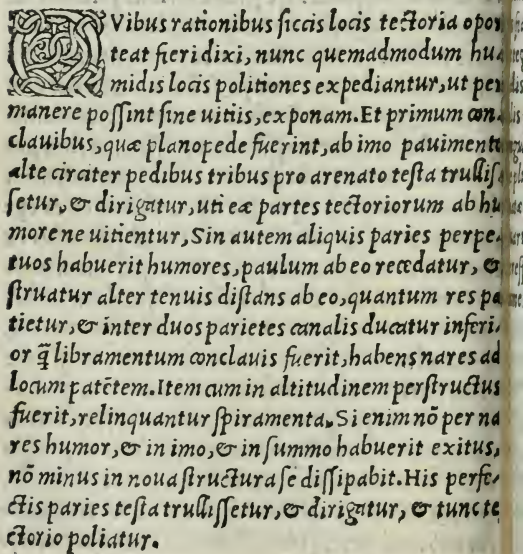 QVibus rationibus siccis locis tectoria opor
teat fieri dixi, nunc quemadmodum hu
midis locis politiones expediantur, ut per
manere possint sine uitiis, exponam. Et primum con
clauibus, quæ plano pede fuerint, ab imo pauimento
alte circiter pedibus tribus pro arenato testa trullis
setur, & dirigatur, uti eæ partes tectoriorum ab hu
more ne uitientur, Sin autem aliquis paries perpe-
tuos habuerit humores, paulum ab eo recedatur, &
struatur alter tenuis distans ab eo, quantum res pa
tietur, & inter duos parietes canalis ducatur inferi-
or q̃ libramentum conclauis fuerit, habens nares ad
locum patẽtem. Item cum in altitudinem perstructus
fuerit, relinquantur spiramenta. Si enim nõ per na
res humor, & in imo, & in summo habuerit exitus,
nõ minus in noua structura se dissipabit. His perfe-
ctis paries testa trullissetur, & dirigatur, & tunc te
ctorio poliatur.